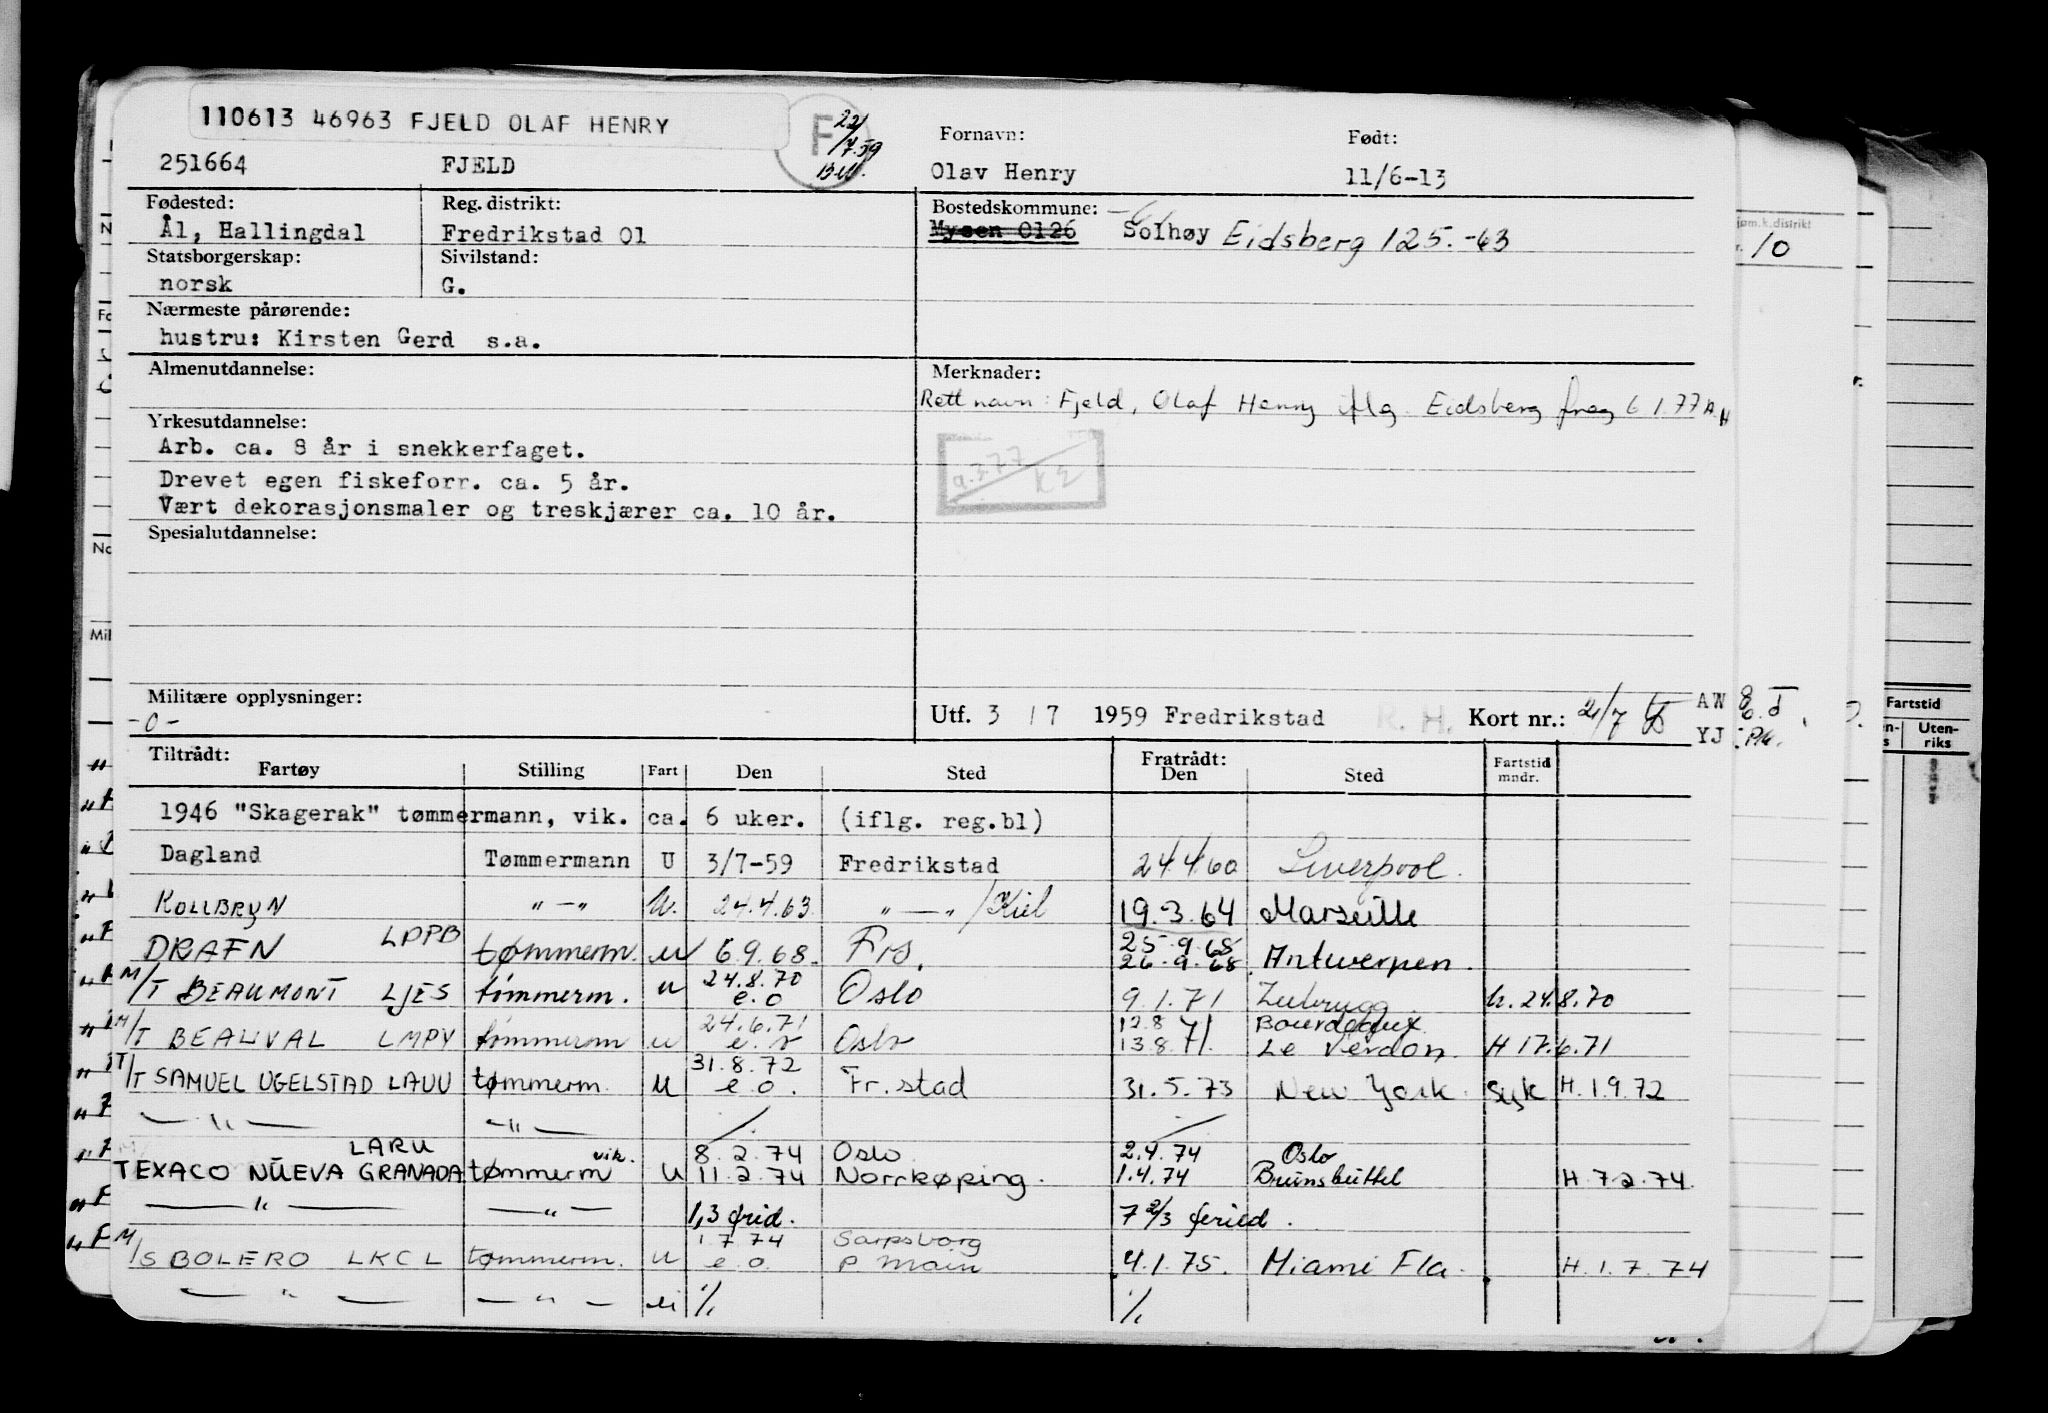 110613 46963 FJELD OLAF HENRY
F 22/7.59
251664 FJELD
Fornavn: Født:
Olav Henry 11/6-13
Fødested: Reg. distrikt: Bostedskommune:
Ål, Hallingdal Fredrikstad 01 Mysen 0126 Solhøy Eidsberg 125.-63
Statsborgerskap: Sivilstand:
norsk G.
Nærmeste pårørende:
hustru: Kirsten Gerd s.a.
Almenutdannelse: Merknader:
Rett navn: Fjeld, Olaf Henry iflg. Eidsberg freg 6 1.77 A.H
Yrkesutdannelse:
Arb. ca. 8 år i snekkerfaget.
9.3.77 KE
Drevet egen fiskeforr. ca. 5 år.
Vært dekorasjonsmaler og treskjærer ca. 10 år.
Spesialutdannelse:
Militære opplysninger:
-0-
Utf. 3 / 7 1959 Fredrikstad R. H. Kort nr.: 2/7 AW
YJ
Tiltrådt: Fratrådt:
Fartøy Stilling Fart Den Sted Den Sted Fartstid mndr.
1946 "Skagerak" tømmermann, vik. ca. 6 uker. (iflg. reg.bl)
Dagland Tømmermann U 3/7-59 Fredrikstad 24/4 60 Liverpool.
KOLLBRYN " — " U. 24.4.63 " — " / Kiel 19.3.64 Marseille
25.9.68
DRAFN LDPB tømmerm. u 6.9.68. Frs. 26.9.68. Antwerpen.
24.8.70
M/T BEAUMONT LJES tømmerm. u e.o Oslo 9.1.71 Zeebrugg h. 24.8.70
24.6.71 12.8 Bourdeaux
M/T BEAUVAL LMPY tømmerm u e.o Oslo 13.8.71. Le Verdon. H 17.6.71
31.8.72
T/T SAMUEL UGELSTAD LAUU tømmerm. u e.o. Fr.stad 31.5.73 New York. Syk H.1.9.72
— " — — " — / /
LARU vik. 8.2.74 Oslo 2.4.74 Oslo
TEXACO NUEVA GRANADA tømmerm U 11.2.74 Norrkøping. 1.4.74 Brunsbuttel H.7.2.74.
— " — — " — 1,3 frid. 7 2/3 feried.
1.7.74 Sarpsborg
M/S BOLERO LKCL tømmerm. u e.o. P Main 4.1.75. Miami Fla. H.1.7.74
— " — — " — ei % %
jem.k.distrikt
10
Fartstid
Uten-
riks